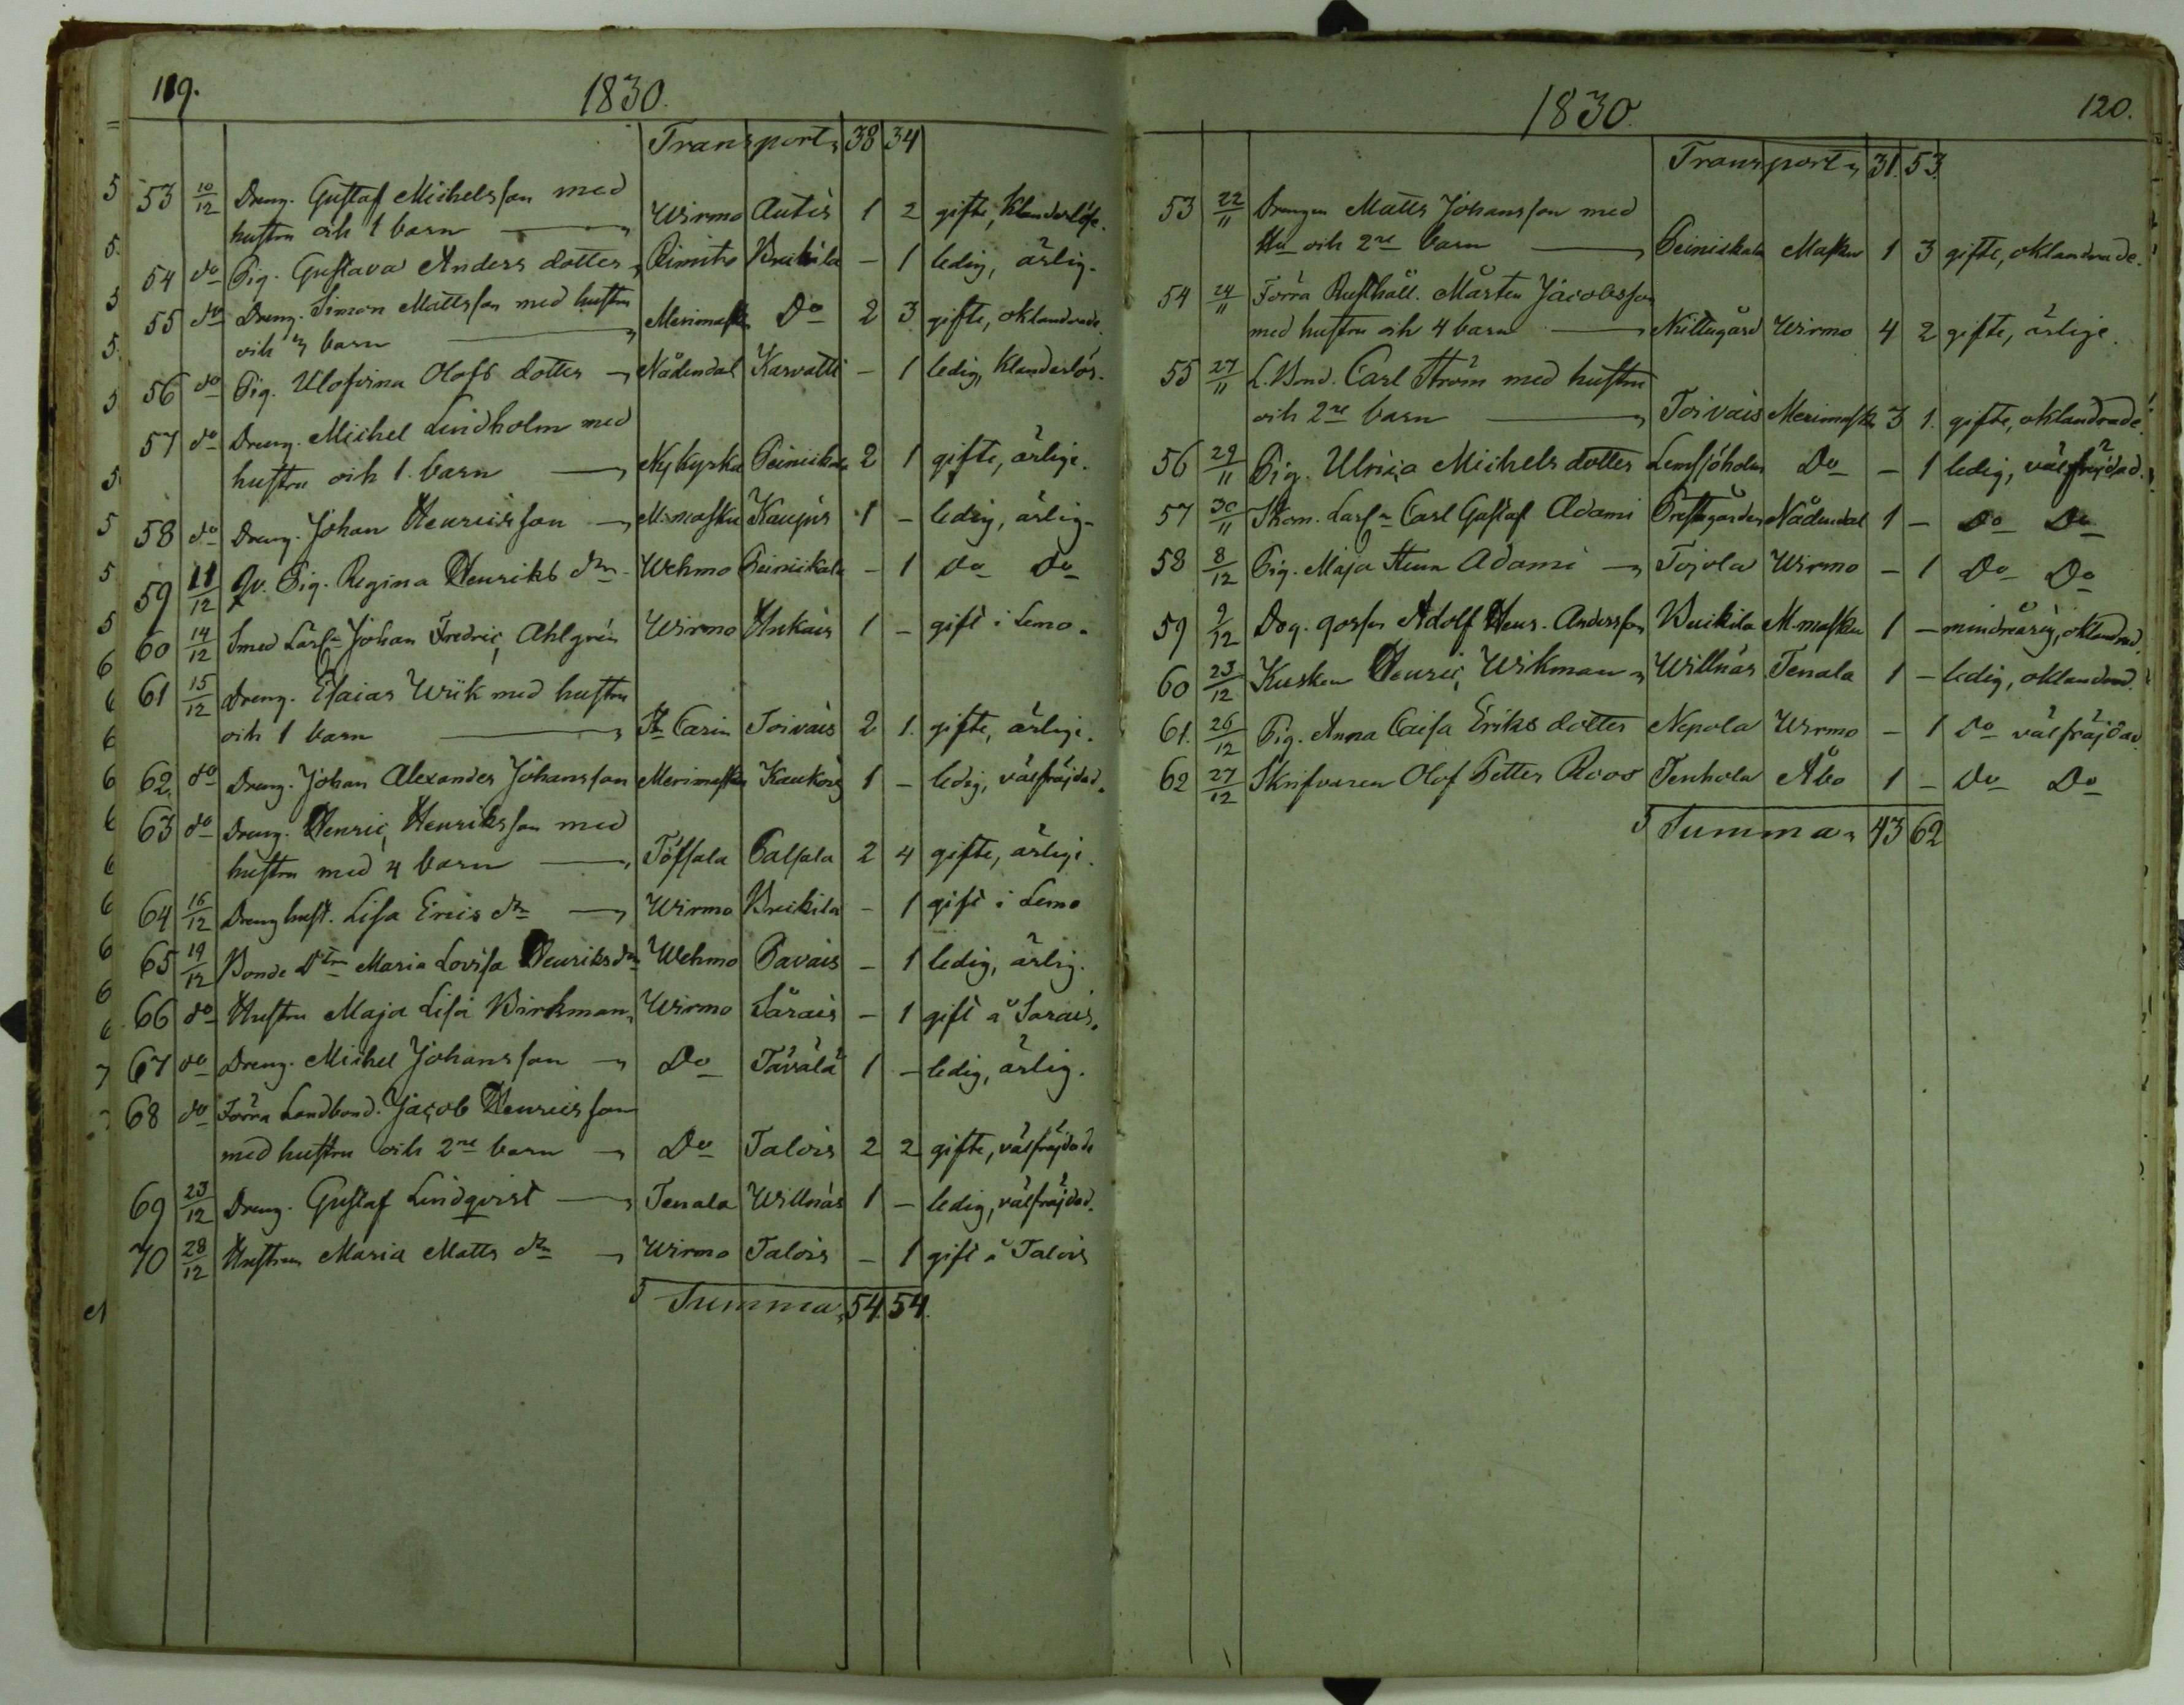 119.
1830.
Transport, 38 34
53 10/12 Dreng. Gustaf Michelsson med
hustru och 1 barn Wirmo Autis 1 2 gifte, klanderlöse.
54 do Pig. Gustava Anders dotter, Rimito Breikila - 1 ledig, ärlig.
55 do Dreng. Simon Mattsson med hustru
och 3 barn Merimasku Do 2 3 gifte, oklandrade.
56 do Pig. Ulofvina Olofs dotter Nådendal Karvatti - 1 ledig, klanderlös.
57 do Dreng. Michel Lindholm med
hustru och 1 barn Nykyrka Peiniikala 2 1 gifte, ärlige.
58 do Dreng. Johan Henricsson M.masku Kaupis 1 - ledig, ärlig.
59 11/12 Qv. Pig. Regina Henriks dtr Wehmo Peiniikala - 1 do do
60 14/12 Smed Lärl. Johan Fredric Ahlgrén Wirmo Unkais 1 - gift i Lemo.
61 15/12 Dreng. Esaias Wiik med hustru
och 1 barn St Carin Toivais 2 1. gifte, ärlige.
62. do Dreng. Johan Alexander Johansson Merimasku Kaukois 1 - ledig, välfräjdad.
63 do Dreng. Henric Henriksson med
hustru med 4 barn Töfsala Palsala 2 4 gifte, ärlige.
64 16/12 Dreng hust. Lisa Erics dtr Wirmo Breikila - 1 gift i Lemo
65 19/12 Bonde Dtrn Maria Lovisa Henriksdtr Wehmo Pavais - 1 ledig, ärlig.
66 do Hustru Maja Lisa Birkman, Wirmo Särais - 1 gift å Sarais.
67 do Dreng. Michel Johansson Do Tävälä 1 - ledig, ärlig.
68 do Förra Landbond. Jacob Henricsson
med hustru och 2ne barn Do Talois 2 2 gifte, välfräjdade
69 23/12 Dreng. Gustaf Lindqvist Tenala Willnäs 1 - ledig, välfräjdad.
70 28/12 Hustrun Maria Matts dtr Wirmo Talois - 1 gift å Talois
Summa, 54. 54.
1830.
120.
Transport, 31. 53.
53 22/11 Drengen Matts Johansson med
Hu och 2ne barn Peiniikala Masku 1 3 gifte, oklandrade.
54 24/11 Förra Rusthåll. Mårten Jacobsson
med hustru och 4 barn Nuttugård Wirmo 4 2 gifte, ärlige.
55 27/11 L. Bond. Carl Ström med hustru
och 2ne barn Toivais Merimasku 3 1. gifte, oklandrade.
56 29/11 Pig. Ulrica Michels dotter Lemsjöholm Do - 1 ledig, välfräjdad.
57 30/11 Skom. Lärl. Carl Gustaf Adami Prestgården Nådendal 1 - Do Do
58 8/12 Pig. Maja Stina Adami Tojola Wirmo - 1 Do Do
59 9/12 Dog. gossen Adolf Henr. Andersson Breikila M.masku 1 - mindreårig, oklandrad.
60 23/12 Kusken Henric Wikman, Willnäs Tenala 1 - ledig, oklandrad.
61. 26/12 Pig. Anna Caisa Eriks dotter Nepola Wirmo - 1 Do välfräjdad
62 27/12 Skrifvaren Olof Petter Roos Tenhola Åbo 1 - Do Do
Summa, 43 62